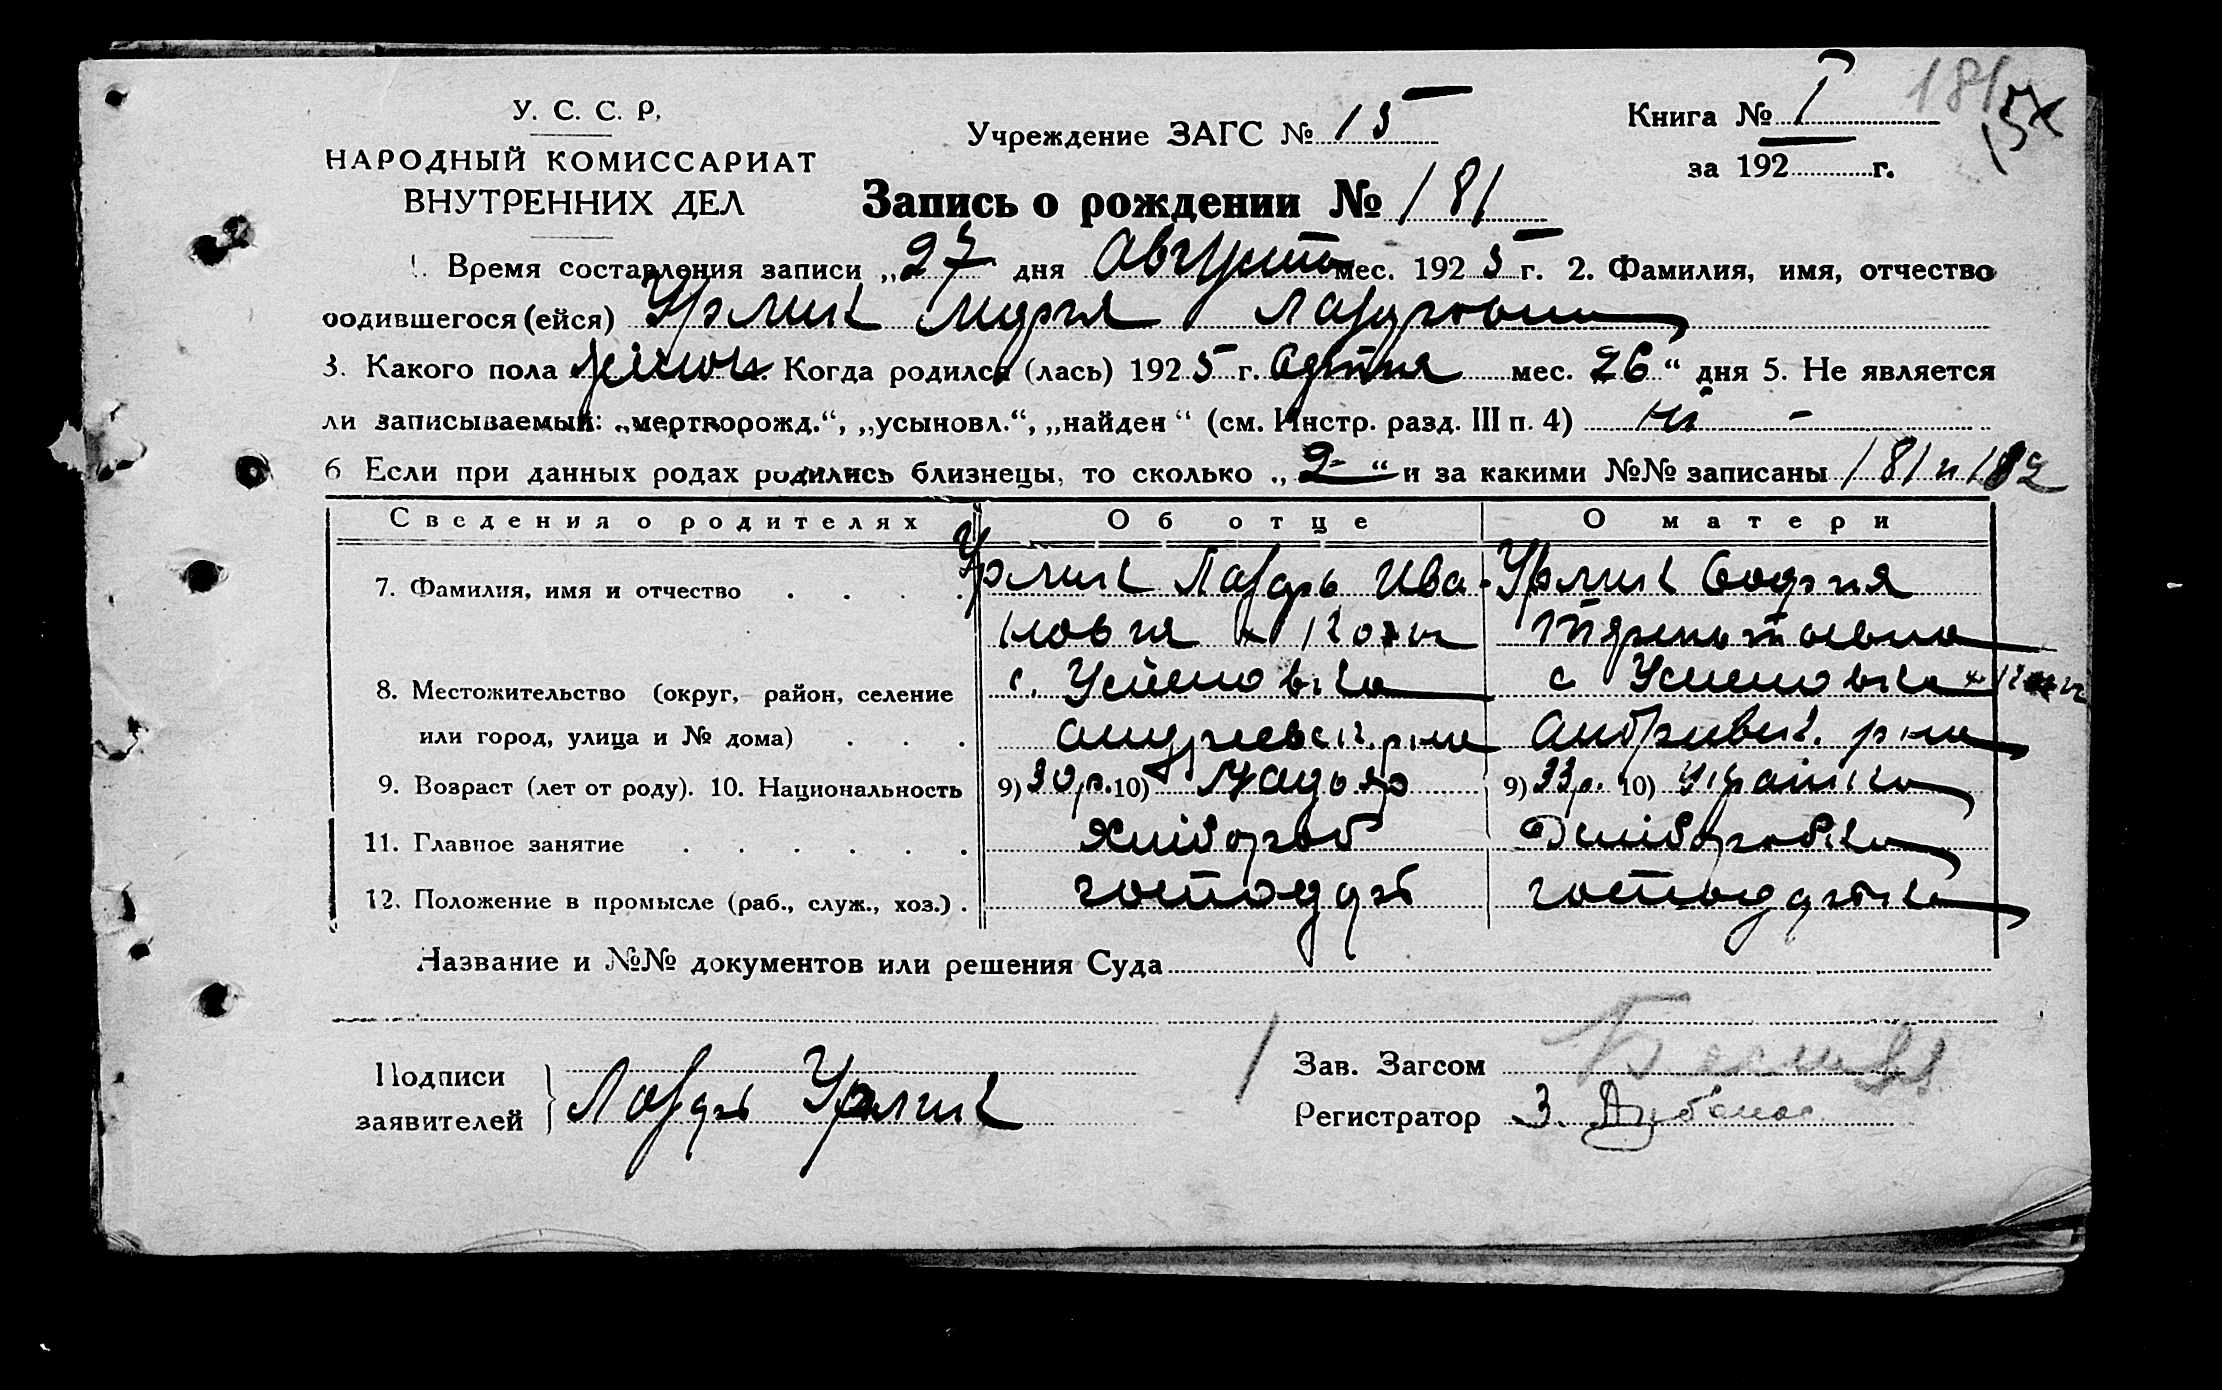 У. С. С. Р.
НАРОДНЫЙ КОМИССАРИАТ
ВНУТРЕННИХ ДЕЛ
Учреждение ЗАГС № 15
Книга № I 181
за 192 г.
Запись о рождении № 181
1. Время составления записи „27 дня Августа мес. 1925 г. 2. Фамилия, имя, отчество
родившегося (ейся) Урлик Мария Лазаровна
3. Какого пола жіноч. Когда родился (лась) 1925 г. Серпня мес. 26 “ дня 5. Не является
ли записываемый: „мертворожд.“, „усыновл.“, „найден“ (см. Инстр. разд. III п. 4) ні -
6 Если при данных родах родились близнецы, то сколько „2“ и за какими №№ записаны 181 и 182
Сведения о родителях Об отце О матери
7. Фамилия, имя и отчество Урлик Лазарь Ива- Урлик Софія
нович
8. Местожительство (округ, район, селение с. Успеновка с Успеновка
или город, улица и № дома) Андріевск. р-на Андріевск. р-на
9. Возраст (лет от роду). 10. Национальность 9) 30 р. 10) Мадьяр 9) 33 р. 10) Українка
11. Главное занятие Хлібороб Хліборобка
12. Положение в промысле (раб., служ., хоз.) господарь господарька
Название и №№ документов или решения Суда
Подписи
заявителей Лазарь Урлик
Зав. Загсом
Регистратор З.